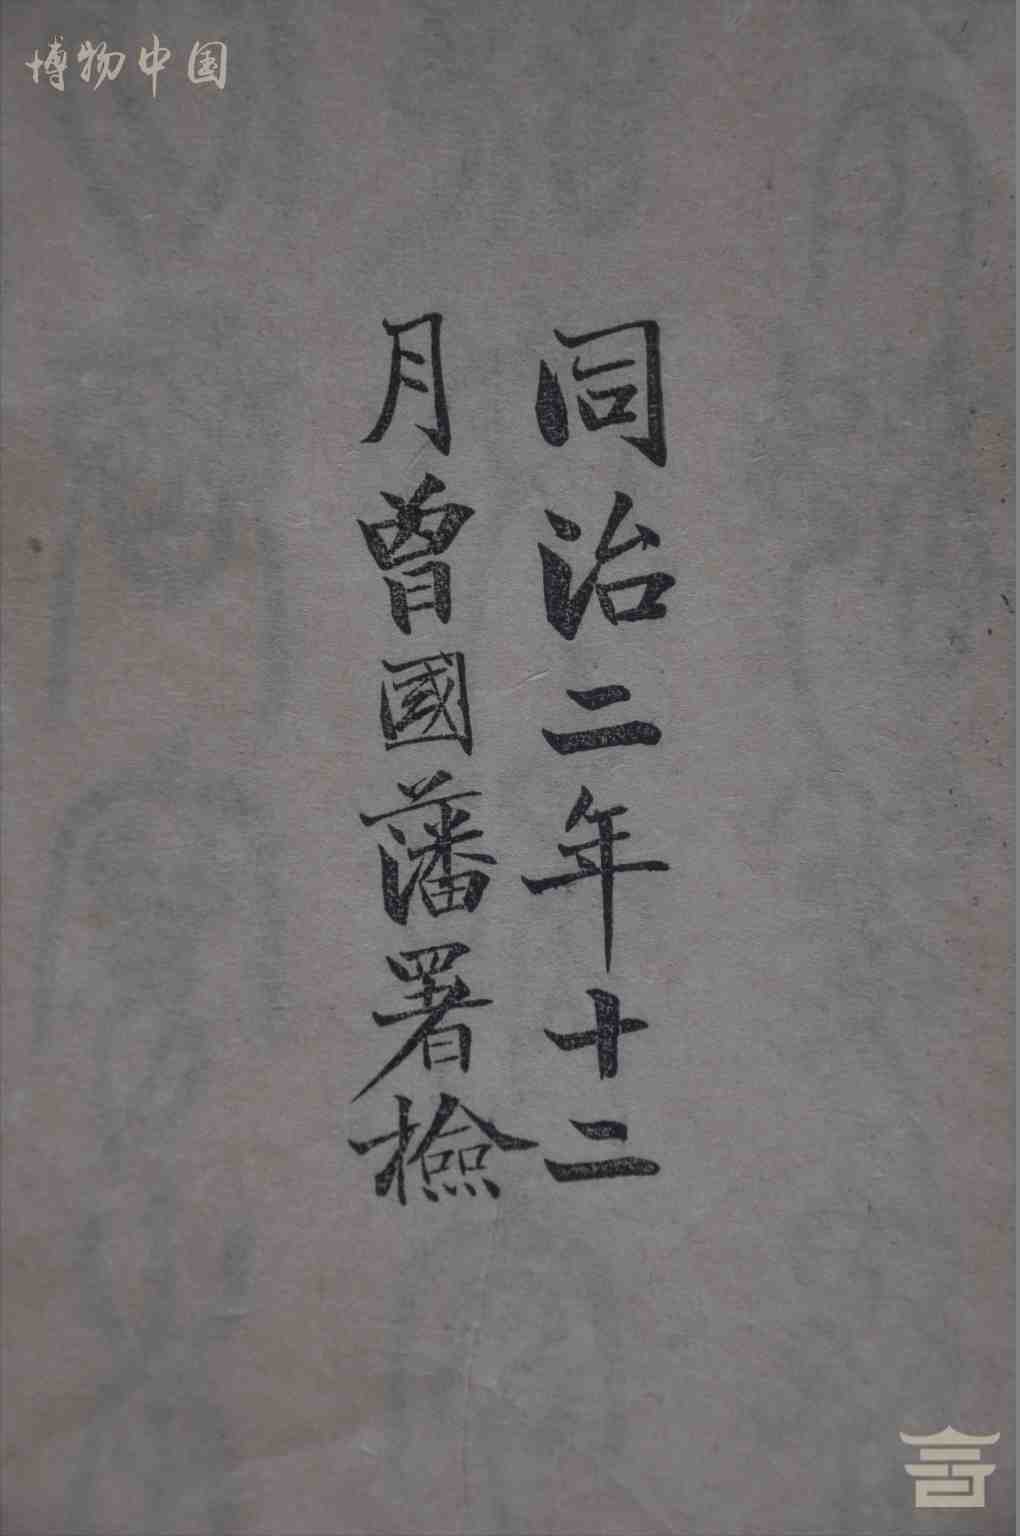 博物中国
同治二年十二
月曾國藩署檢